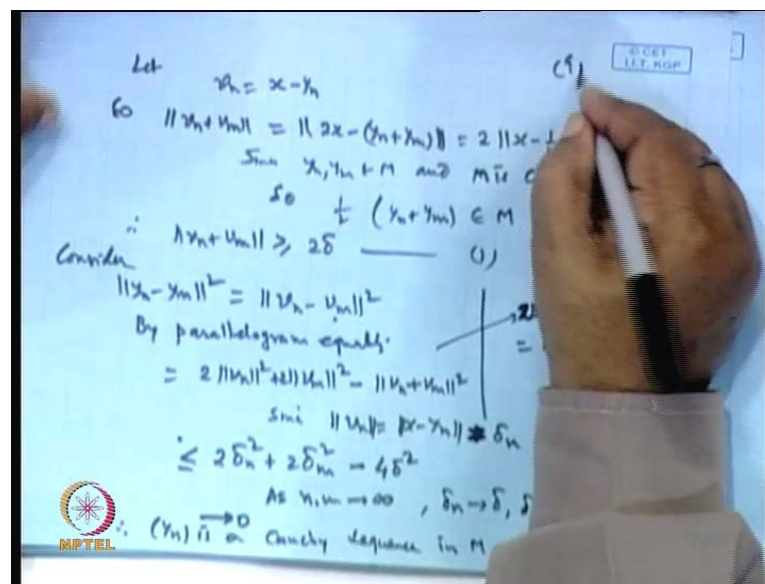 Let
vn = x - yn
So ||vn + vm|| = ||2x - (yn + ym)|| = 2 ||x - 1
Sinc yn, ym ∈ M and M is c
So 1/2 (yn + ym) ∈ M
∴ ||vn + vm|| ≥ 2δ —— (1)
Consider
||yn - ym||² = ||vn - vm||²
By parallelogram equality.
= 2||vn||² + 2||vm||² - ||vn + vm||²
=
Sinc ||vn|| = ||x - yn|| = δn
≤ 2δn² + 2δm² - 4δ²
As n, m → ∞, δn → δ, δ
→ 0
∴ (yn) is a Cauchy sequence in M
© CET
I.I.T. KGP
NPTEL